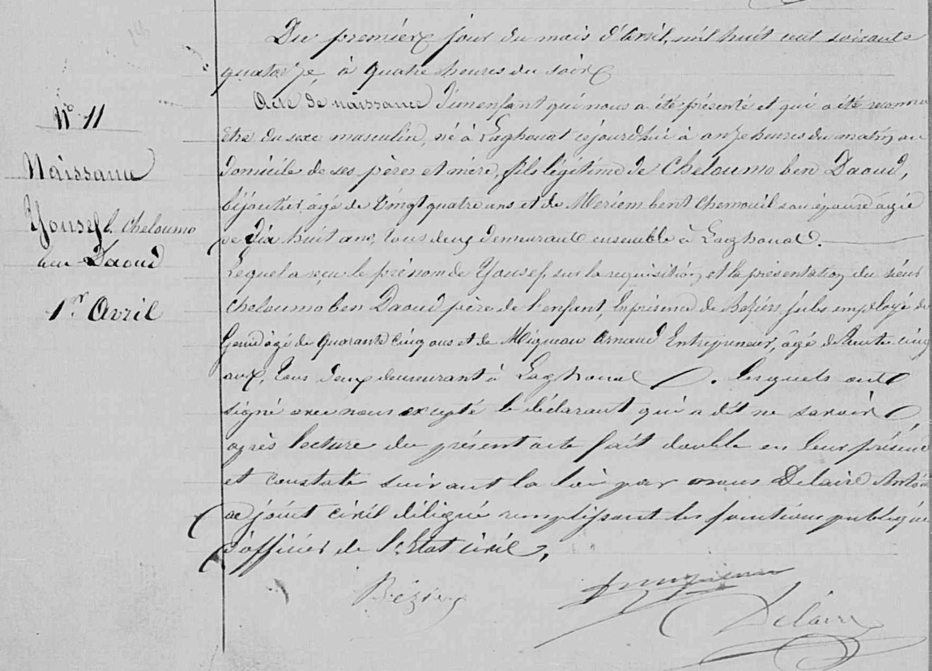 Du premier jour du mois d'Avril, mil huit cent soixante
quatorze à quatre heures du soir
N° 11
Naissance
Yousef b. Cheloumo
ben Daoud
1er Avril
Acte de naissance d'un enfant qui nous a été présenté et qui a été reconnu
être du sexe masculin, né à Laghouat cejourd'hui à onze heures du matin au
domicile de ses pères et mère, fils légitime de Cheloumo ben Daoud,
bijoutier, âgé de Vingt quatre ans et de Meriem bent Chemouil son épouse âgée
de dix huit ans, tous deux demeurant ensemble à Laghouat.
Lequel a reçu le prénom de Yousef sur la requisition et la présentation du sieur
Cheloumo ben Daoud père de l'enfant, En présence de employé du
Génie âgé de Quarante cinq ans et de Migneau Arnaud Entrepreneur, âgé de trente cinq
ans, tous deux demeurant à Laghouat. lesquels ont
signé avec nous excepté le déclarant qui a dit ne savoir,
après lecture du présent acte fait double en leur présence
et constaté suivant la loi par nous Delaire Antoine
adjoint civil délégué remplissant les fonctions publiques
d'officier de l'Etat civil,
Delaire